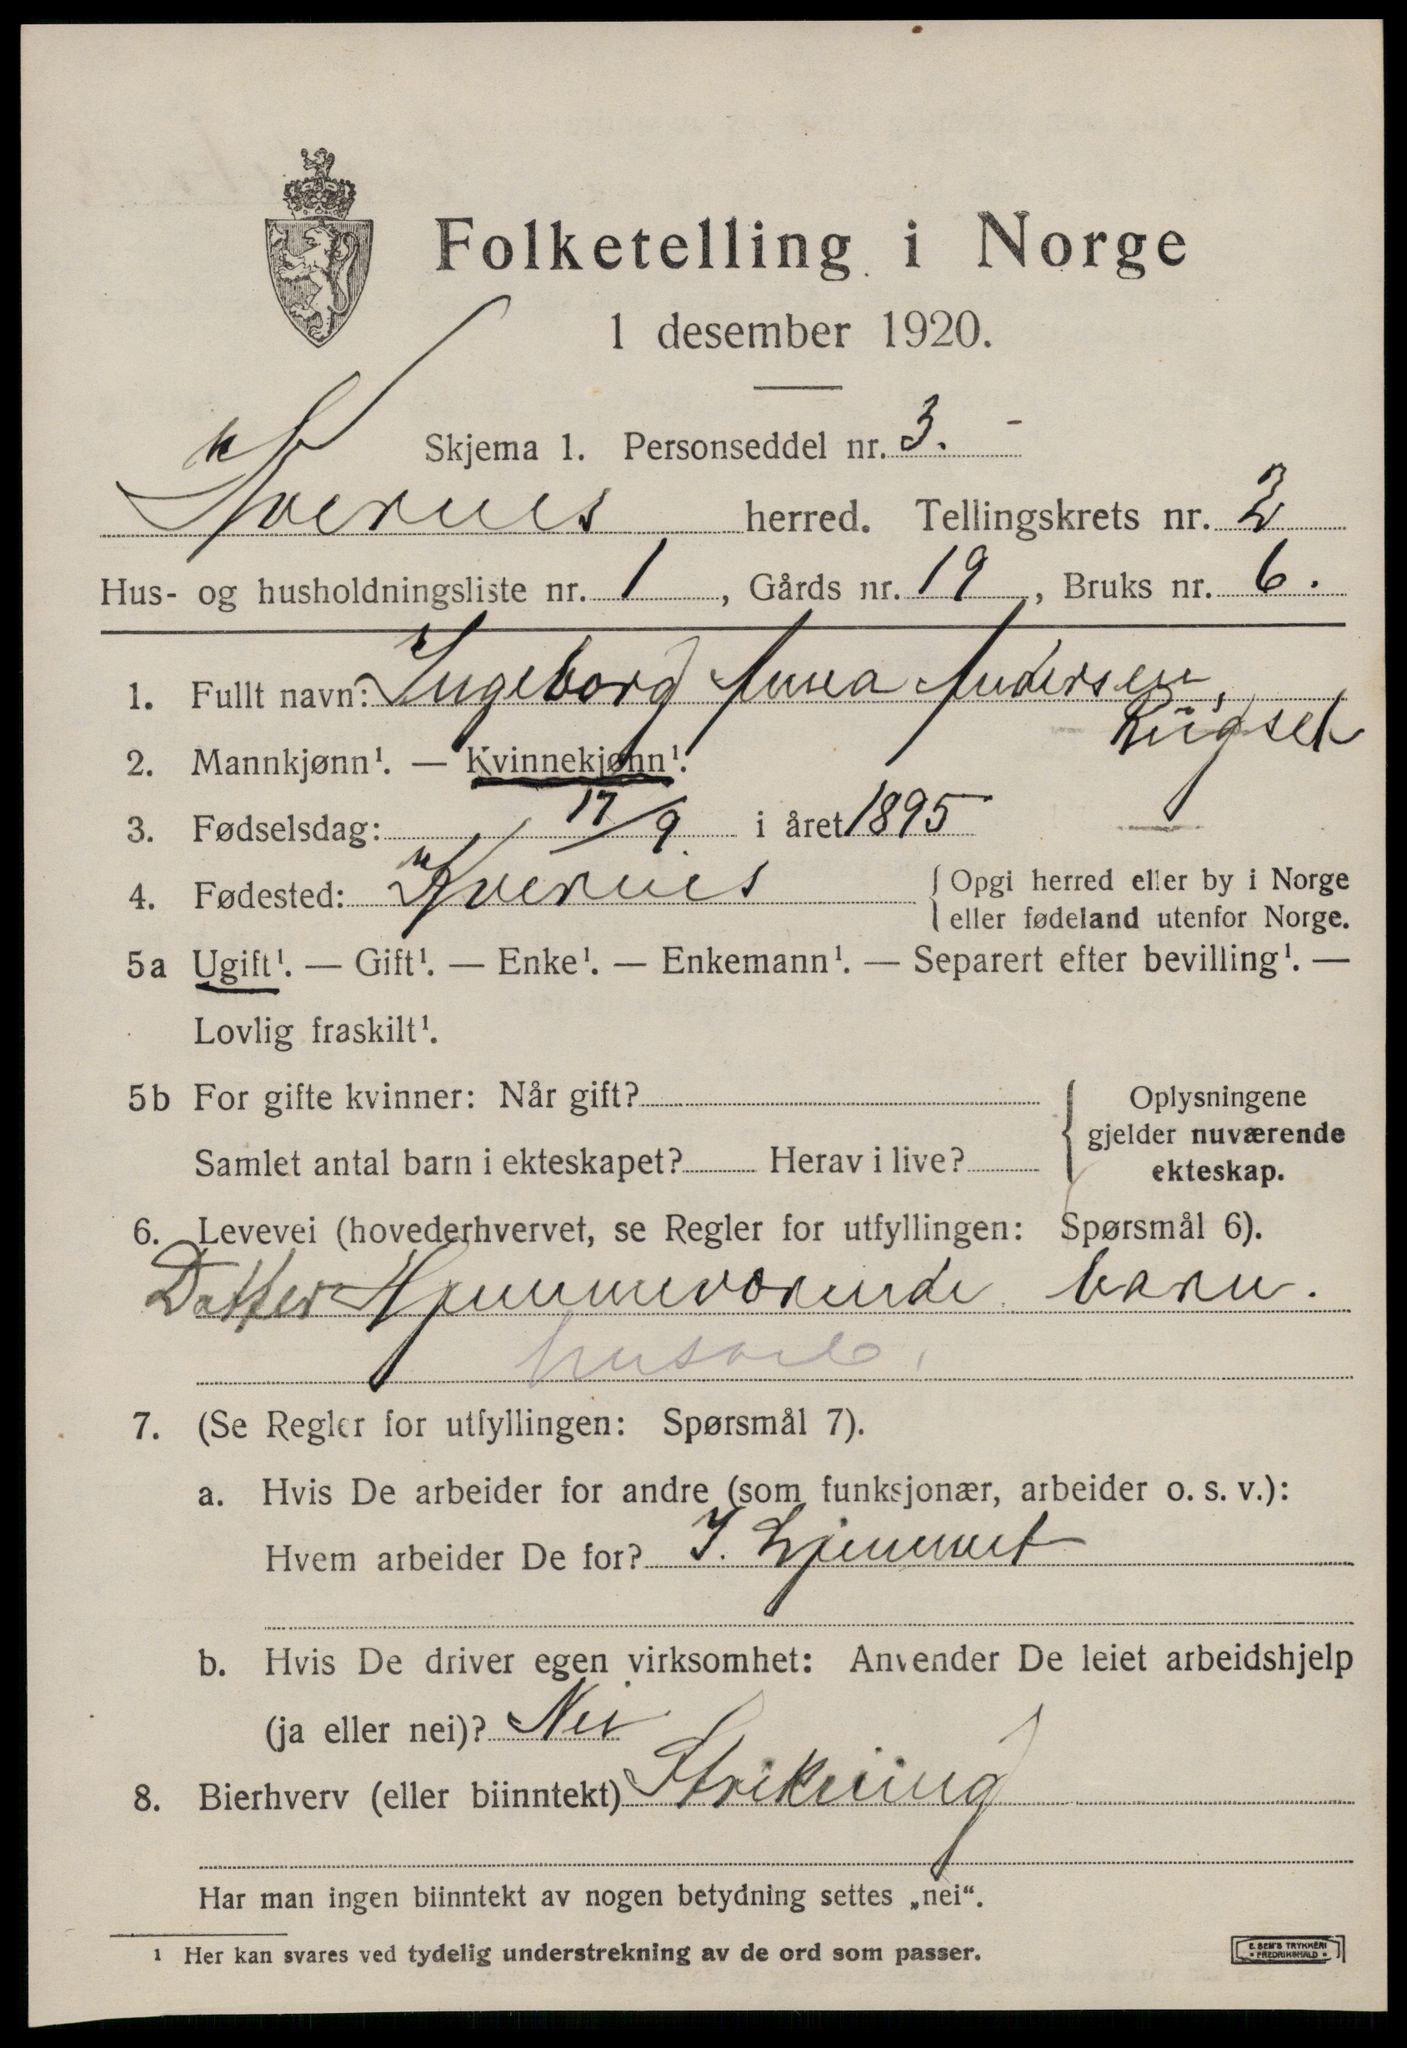 Folketelling i Norge
1 desember 1920.
Skjema 1. Personseddel nr. 3.
Kvernes herred. Tellingskrets nr. 2
Hus- og husholdningsliste nr. 1, Gårds nr. 19, Bruks nr. 6.
1. Fullt navn: Ingeborg Anna Andersen,
2. Mannkjønn¹. — Kvinnekjønn¹.
3. Fødselsdag: 17/9 i året 1895
4. Fødested: Kvernes { Opgi herred eller by i Norge
eller fødeland utenfor Norge.
5a Ugift¹. — Gift¹. — Enke¹. — Enkemann¹. — Separert efter bevilling¹. —
Lovlig fraskilt¹.
5b For gifte kvinner: Når gift?
Samlet antal barn i ekteskapet? Herav i live?
Oplysningene
gjelder nuværende
ekteskap.
6. Levevei (hovederhvervet, se Regler for utfyllingen: Spørsmål 6).
Datter Hjemmeværende barn.
husarb.
7. (Se Regler for utfyllingen: Spørsmål 7).
a. Hvis De arbeider for andre (som funksjonær, arbeider o. s. v.):
Hvem arbeider De for? I. hjemmet
b. Hvis De driver egen virksomhet: Anvender De leiet arbeidshjelp
(ja eller nei)? Nei
8. Bierhverv (eller biinntekt) Strikning
Har man ingen biinntekt av nogen betydning settes „nei“.
¹ Her kan svares ved tydelig understrekning av de ord som passer.
E. SEM'S TRYKKERI
• FREDRIKSHALD •